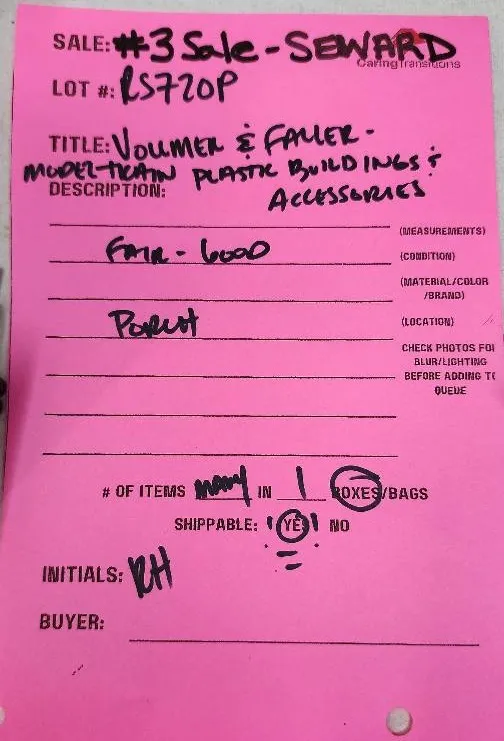 SALE: #3 Sale - SEWARD
CaringTransitions
LOT #: RS720P
TITLE: VOLLMER & FALLER -
MODEL-TRAIN PLASTIC BUILDINGS &
DESCRIPTION: ACCESSORIES
(MEASUREMENTS)
FAIR - GOOD (CONDITION)
(MATERIAL/COLOR
/BRAND)
PORCH (LOCATION)
CHECK PHOTOS FOR
BLUR/LIGHTING
BEFORE ADDING TO
QUEUE
# OF ITEMS MANY IN 1 BOXES/BAGS
SHIPPABLE: ! YES ! NO
INITIALS: RH
BUYER: